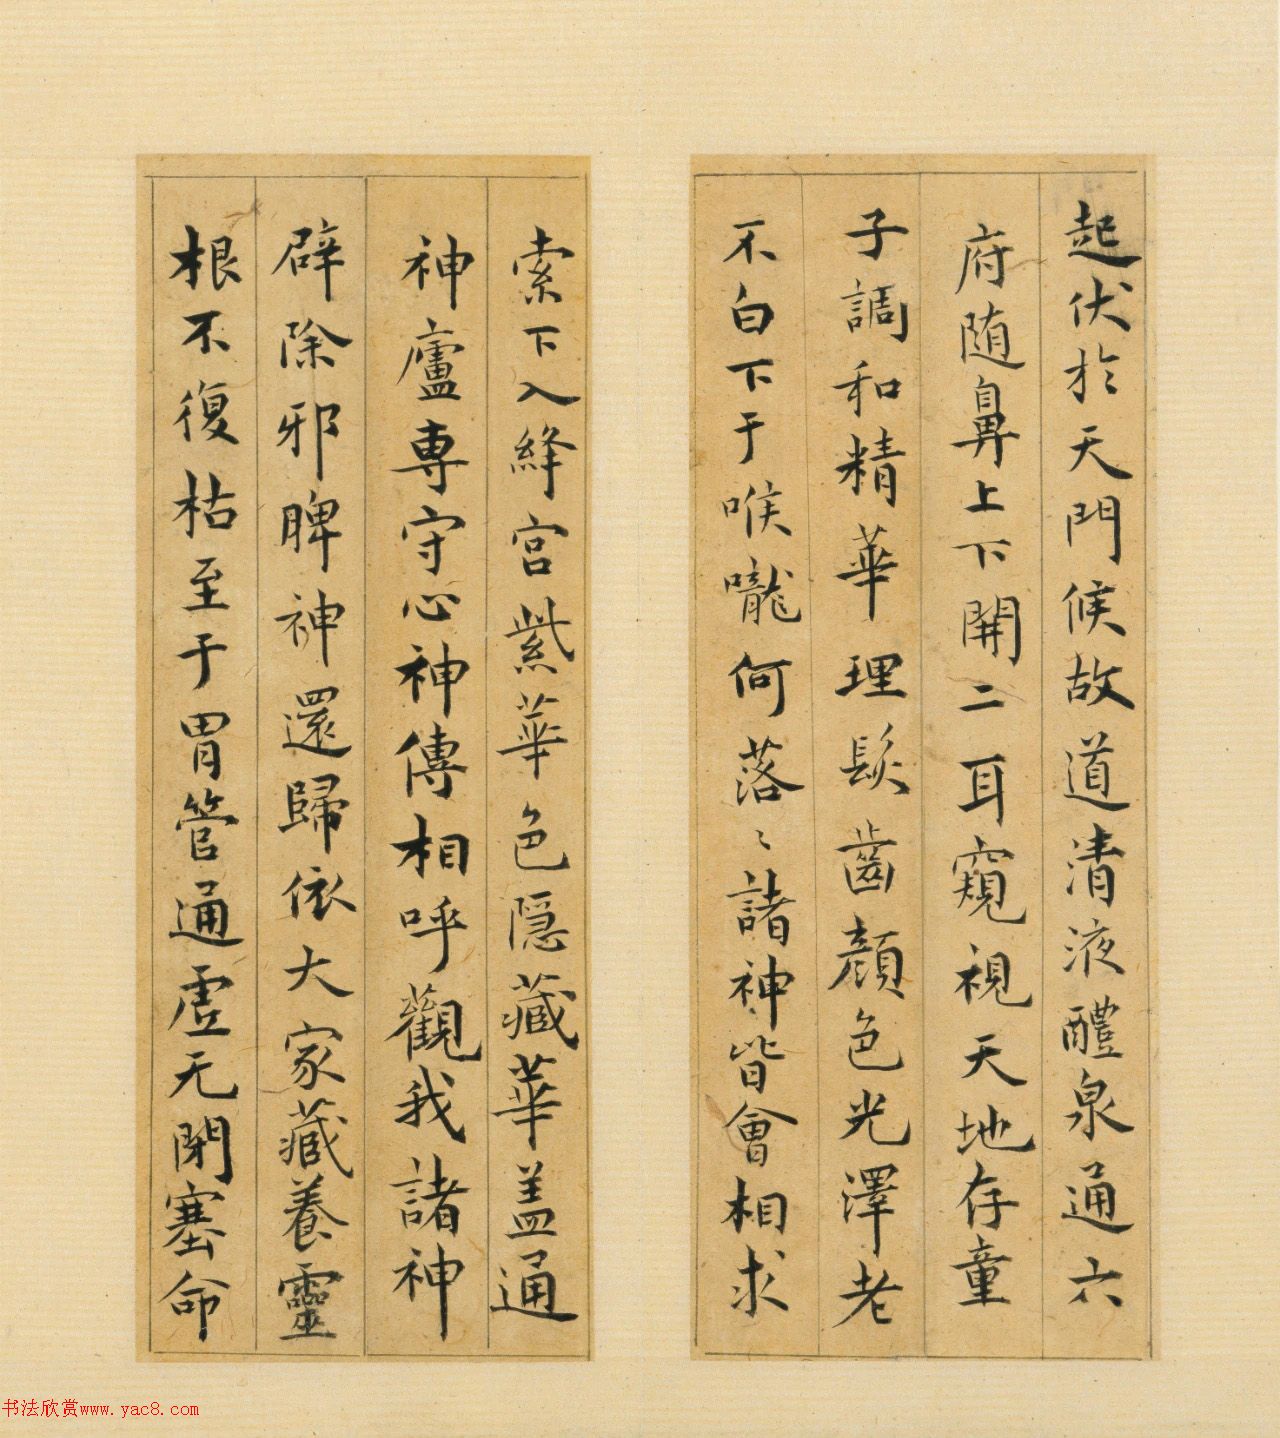 起伏於天門候故道清液醴泉通六
府随鼻上下開二耳窺視天地存童
子調和精華理髮齒顔色光澤老
不白下于喉嚨何落〻諸神皆會相求
索下入絳宮紫華色隠藏華盖通
神廬専守心神傳相呼觀我諸神
辟除邪脾神還歸依大家藏養靈
根不復枯至于胃管通虛无閉塞命
书法欣赏www.yac8.com